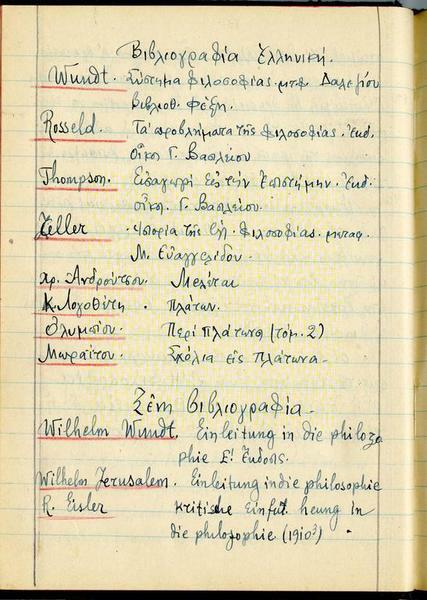 Βιβλιογραφία Ἑλληνική.
Wundt. Σύστημα φιλοσοφίας. μτφ. Δαλεζίου
Βιβλιοθ. Φέξη.
Rosseld. Τὰ προβλήματα τῆς φιλοσοφίας. Ἐκδ.
οἶκος Γ. Βασιλείου
Thompson. Εἰσαγωγὴ εἰς τὴν Ἐπιστήμην. Ἐκδ.
οἴκου. Γ. Βασιλείου.
Zeller. Ἱστορία τῆς ἑλ. φιλοσοφίας. μεταφ.
Μ. Εὐαγγελίδου.
Χρ. Ἀνδρούτσου. Μελέται
Κ. Λογοθέτη. Πλάτων.
Ὀλυμπίου. Περὶ πλάτωνος (τομ. 2)
Μωραΐτου. Σχόλια εἰς πλάτωνα.
Ξένη Βιβλιογραφία.
Wilhelm Wundt. Einleitung in die philozo
phie Ἔκδοσις.
Wilhelm Jerusalem. Einleitung in die philosophie
R. Eisler kritische einfu heung in
die philosophie (1910³)